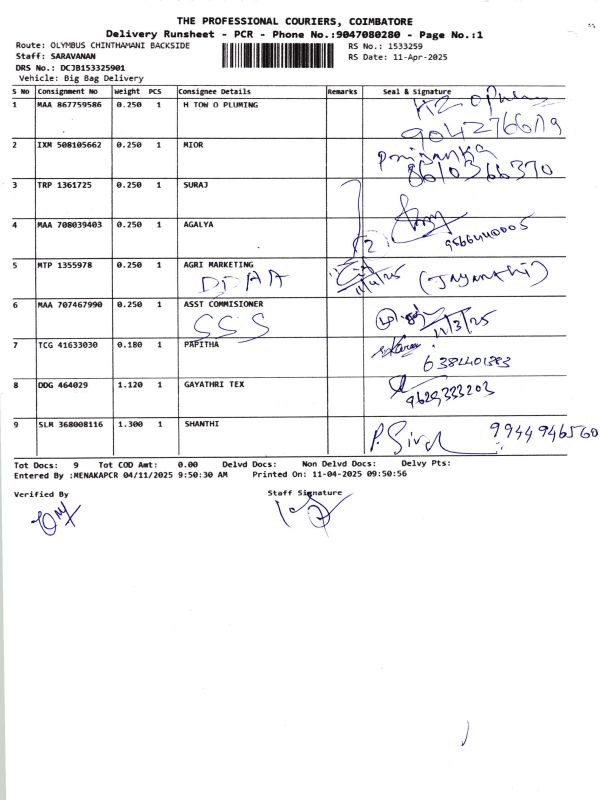 THE PROFESSIONAL COURIERS, COIMBATORE
Delivery Runsheet - PCR - Phone No.:9047080280 - Page No.:1
Route: OLYMBUS CHINTHAMANI BACKSIDE RS No.: 1533259
Staff: SARAVANAN RS Date: 11-Apr-2025
DRS No.: DCJB153325901
Vehicle: Big Bag Delivery
S No Consignment No Weight PCS Consignee Details Remarks Seal & Signature
1 MAA 867759586 0.250 1 H TOW O PLUMING
2 IXM 508105662 0.250 1 MIOR Priyanka
8610366370
3 TRP 1361725 0.250 1 SURAJ
4 MAA 708039403 0.250 1 AGALYA 2 9566440005
5 MTP 1355978 0.250 1 AGRI MARKETING (Jayanthi)
6 MAA 707467990 0.250 1 ASST COMMISIONER 11/3/25
SSS
7 TCG 41633030 0.180 1 PAPITHA
6384401393
8 DDG 464029 1.120 1 GAYATHRI TEX 9629333203
9 SLM 368008116 1.300 1 SHANTHI 9944946560
Tot Docs: 9 Tot COD Amt: 0.00 Delvd Docs: Non Delvd Docs: Delvy Pts:
Entered By :MENAKAPCR 04/11/2025 9:50:30 AM Printed On: 11-04-2025 09:50:56
Verified By Staff Signature